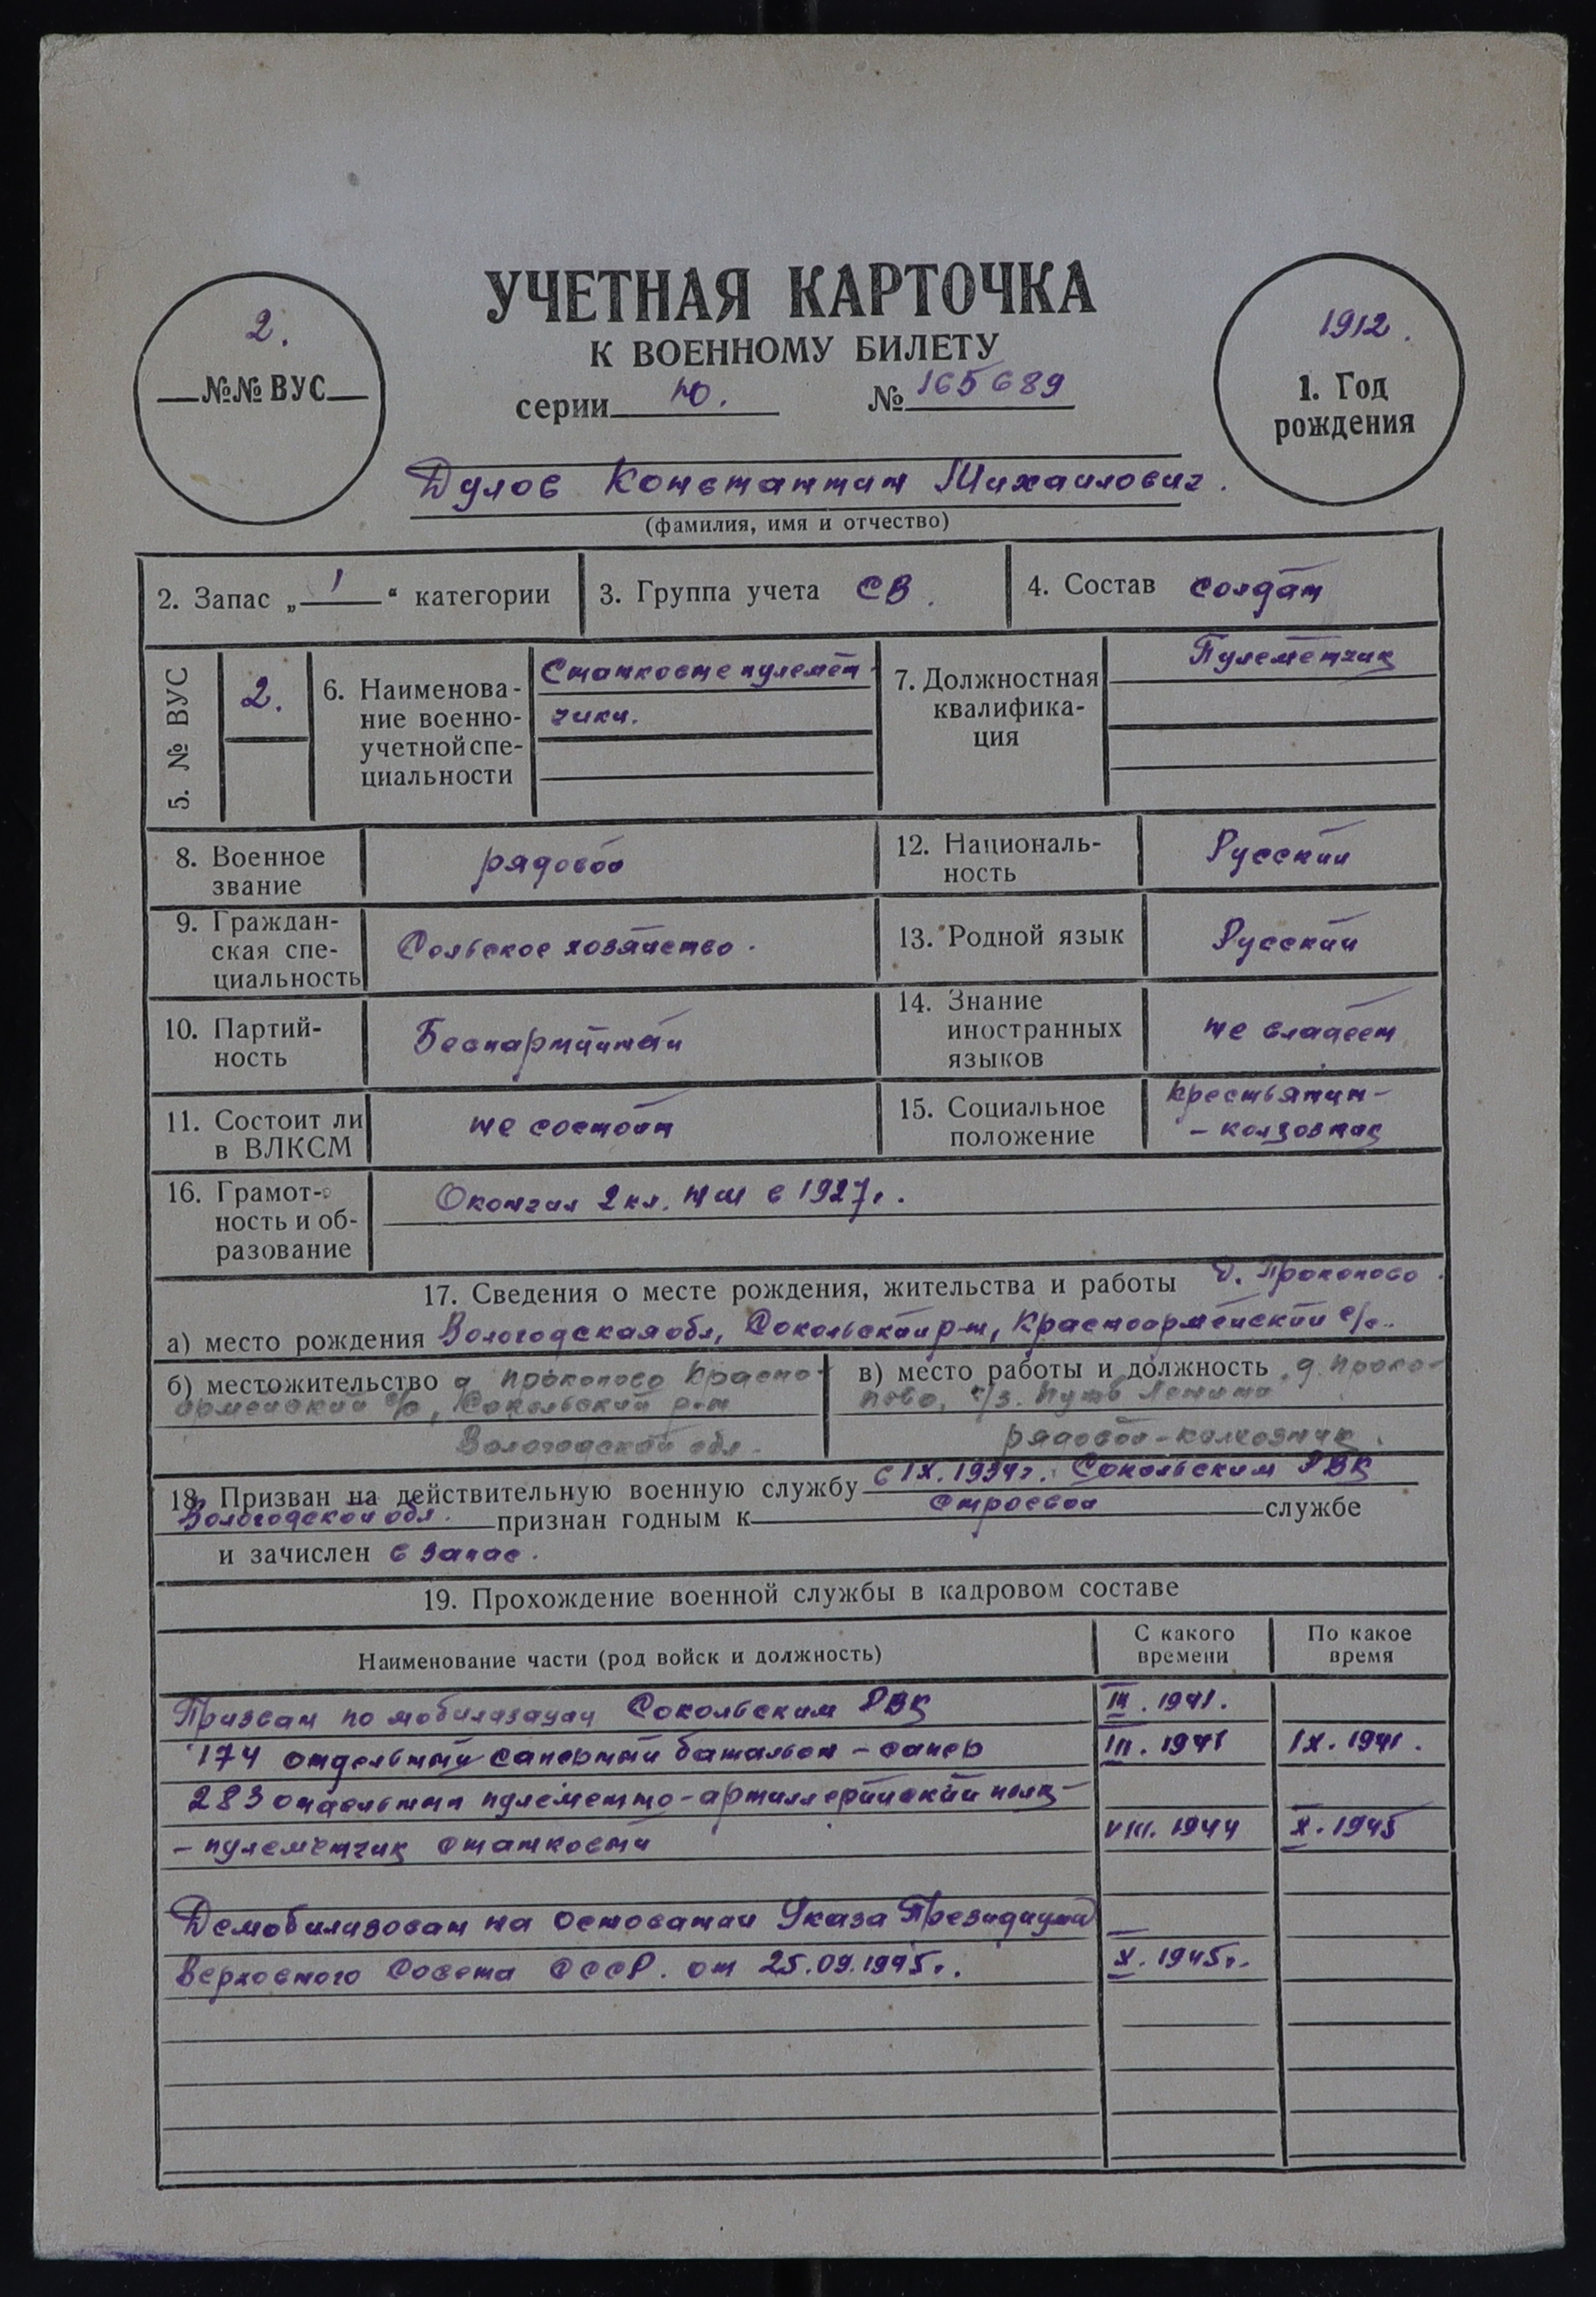 УЧЕТНАЯ КАРТОЧКА
К ВОЕННОМУ БИЛЕТУ
серии Ю. № 165689
2.
№№ ВУС
1912.
1. Год
рождения
Дулов Константин Михаилович.
(фамилия, имя и отчество)
2. Запас „ 1 “ категории
3. Группа учета СВ.
4. Состав солдат
5. № ВУС
2.
6. Наименова-
ние военно-
учетной спе-
циальности
Станковые пулемет-
чики.
7. Должностная
квалифика-
ция
Пулеметчик
8. Военное
звание
рядовой
9. Граждан-
ская спе-
циальность
Сельское хозяйство.
10. Партий-
ность
Беспартийный
11. Состоит ли
в ВЛКСМ
не состоит
12. Националь-
ность
Русский
13. Родной язык
Русский
14. Знание
иностранных
языков
не владеет
15. Социальное
положение
крестьянин-
- колхозник
16. Грамот-
ность и об-
разование
Окончил 2 кл. НШ в 1927г.
17. Сведения о месте рождения, жительства и работы д. Прокопово.
а) место рождения Вологодская обл, Сокольский р-н, Красноармейский с/с.
б) местожительство д Прокопово Красно-
армейский с/с, Сокольский р-н
Вологодской обл.
в) место работы и должность д. Проко-
пово, к/з. Путь Ленина
рядовой-колхозник.
18. Призван на действительную военную службу в IX. 1934г. Сокольским РВК
Вологодской обл. признан годным к строевой службе
и зачислен в запас.
19. Прохождение военной службы в кадровом составе
Наименование части (род войск и должность)
С какого
времени
По какое
время
Призван по мобилизации Сокольским РВК III. 1941.
174 отдельный саперный батальон - сапер III. 1941 IX. 1941.
283 отдельный пулеметно-артиллерийский полк-
- пулеметчик станковый VIII. 1944 X. 1945
Демобилизован на основании Указа Президиума
Верховного Совета СССР. от 25.09.1945г. X. 1945г.